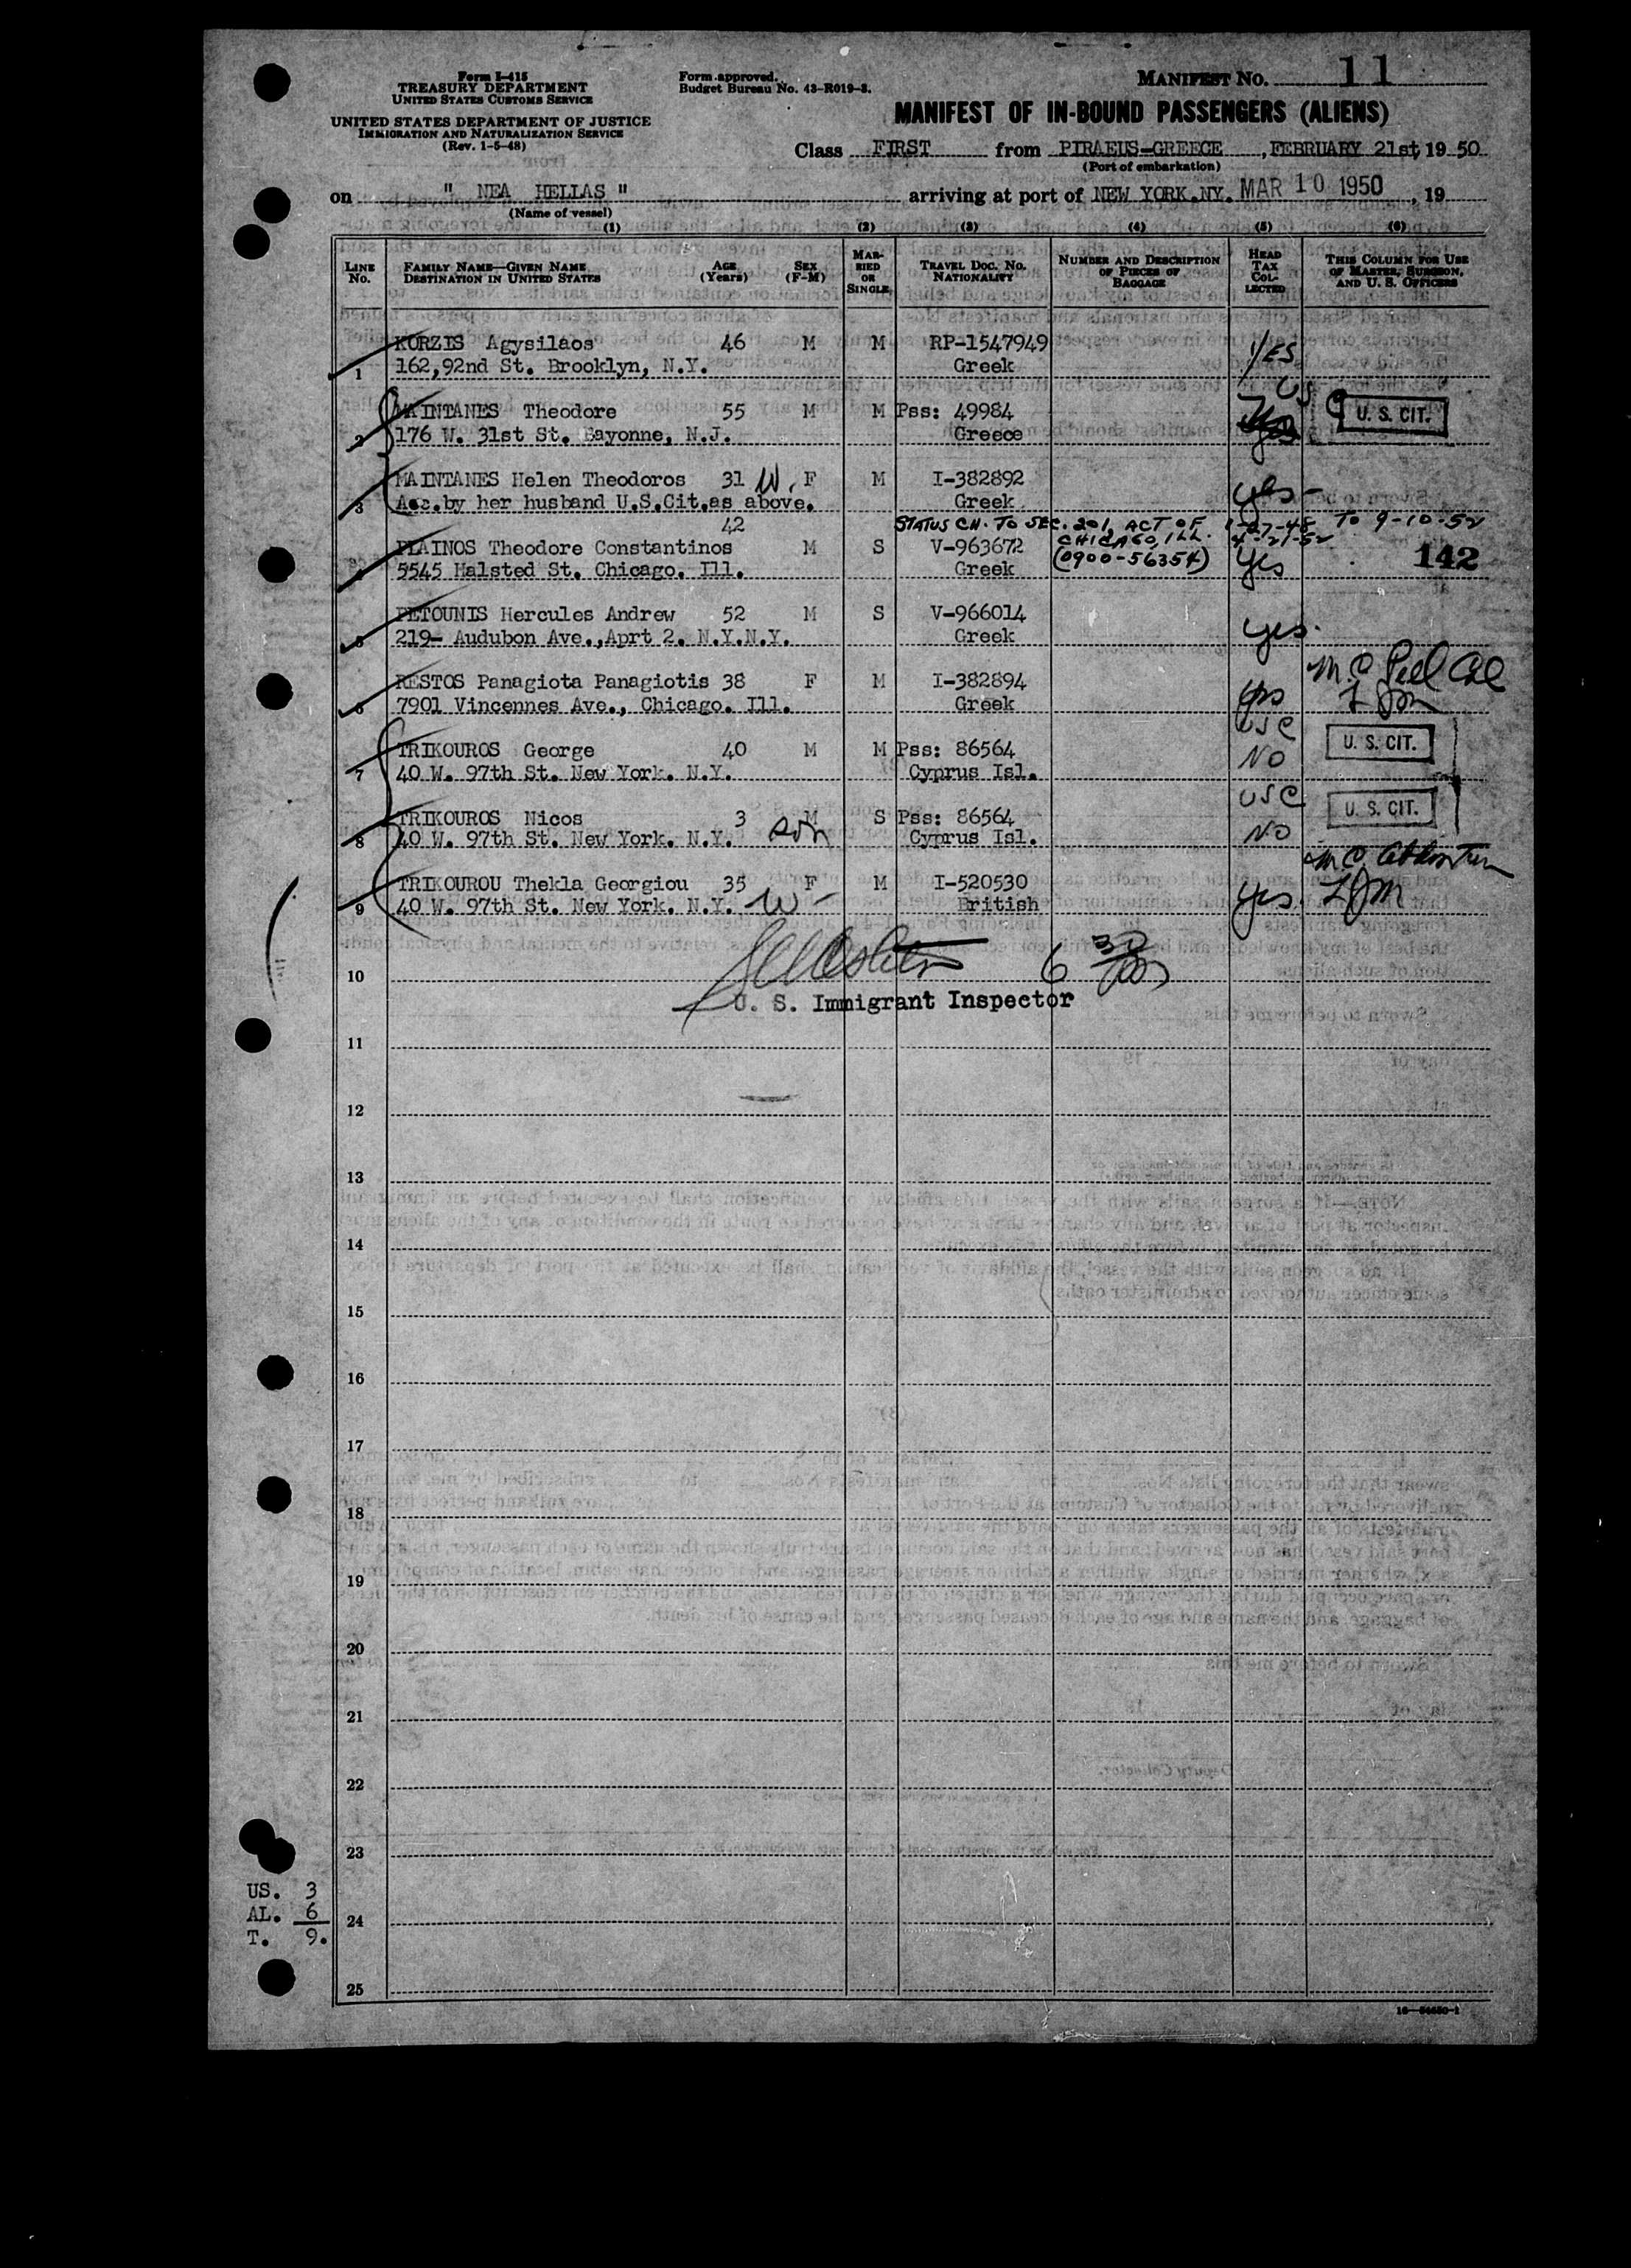 Form I-415
TREASURY DEPARTMENT
UNITED STATES CUSTOMS SERVICE
UNITED STATES DEPARTMENT OF JUSTICE
IMMIGRATION AND NATURALIZATION SERVICE
(Rev. 1-5-48)
Form approved.
Budget Bureau No. 43-R019-3.
MANIFEST NO. 11
MANIFEST OF IN-BOUND PASSENGERS (ALIENS)
Class FIRST from PIRAEUS-GREECE, FEBRUARY 21st, 19 50
(Port of embarkation)
on " NEA HELLAS " arriving at port of NEW YORK.NY. MAR 10 1950, 19
(Name of vessel)
(1) (2) (3) (4) (5) (6)
LINE NO. FAMILY NAME—GIVEN NAME DESTINATION IN UNITED STATES AGE (Years) SEX (F-M) MARRIED OR SINGLE TRAVEL DOC. NO. NATIONALITY NUMBER AND DESCRIPTION OF PIECES OF BAGGAGE HEAD TAX COLLECTED THIS COLUMN FOR USE OF MASTER, SURGEON, AND U. S. OFFICERS
KORZIS Agysilaos 46 M M RP-1547949 YES
1 162,92nd St. Brooklyn, N.Y. Greek
US
MAINTANES Theodore 55 M M Pss: 49984 U. S. CIT.
2 176 W. 31st St. Bayonne, N.J. Greece
MAINTANES Helen Theodoros 31 W. F M I-382892 yes-
3 Acc.by her husband U.S.Cit.as above. Greek
42 STATUS CH. TO SEC. 201, ACT OF 1-27-48 TO 9-10-52
PLAINOS Theodore Constantinos M S V-963672 CHICAGO, ILL. 4-21-52 142
4 5545 Halsted St. Chicago. Ill. Greek (0900-56354) yes
PETOUNIS Hercules Andrew 52 M S V-966014 yes.
5 219- Audubon Ave.,Aprt 2. N.Y.N.Y. Greek
RESTOS Panagiota Panagiotis 38 F M I-382894 yes
6 7901 Vincennes Ave., Chicago. Ill. Greek
USC
TRIKOUROS George 40 M M Pss: 86564 NO U. S. CIT.
7 40 W. 97th St. New York. N.Y. Cyprus Isl.
USC
TRIKOUROS Nicos 3 M S Pss: 86564 NO U. S. CIT.
8 40 W. 97th St. New York. N.Y. son Cyprus Isl.
TRIKOUROU Thekla Georgiou 35 F M I-520530 yes.
9 40 W. 97th St. New York. N.Y. W- British
6 30
10
U. S. Immigrant Inspector
11
12
13
14
15
16
17
18
19
20
21
22
23
US. 3
AL. 6
24
T. 9.
25